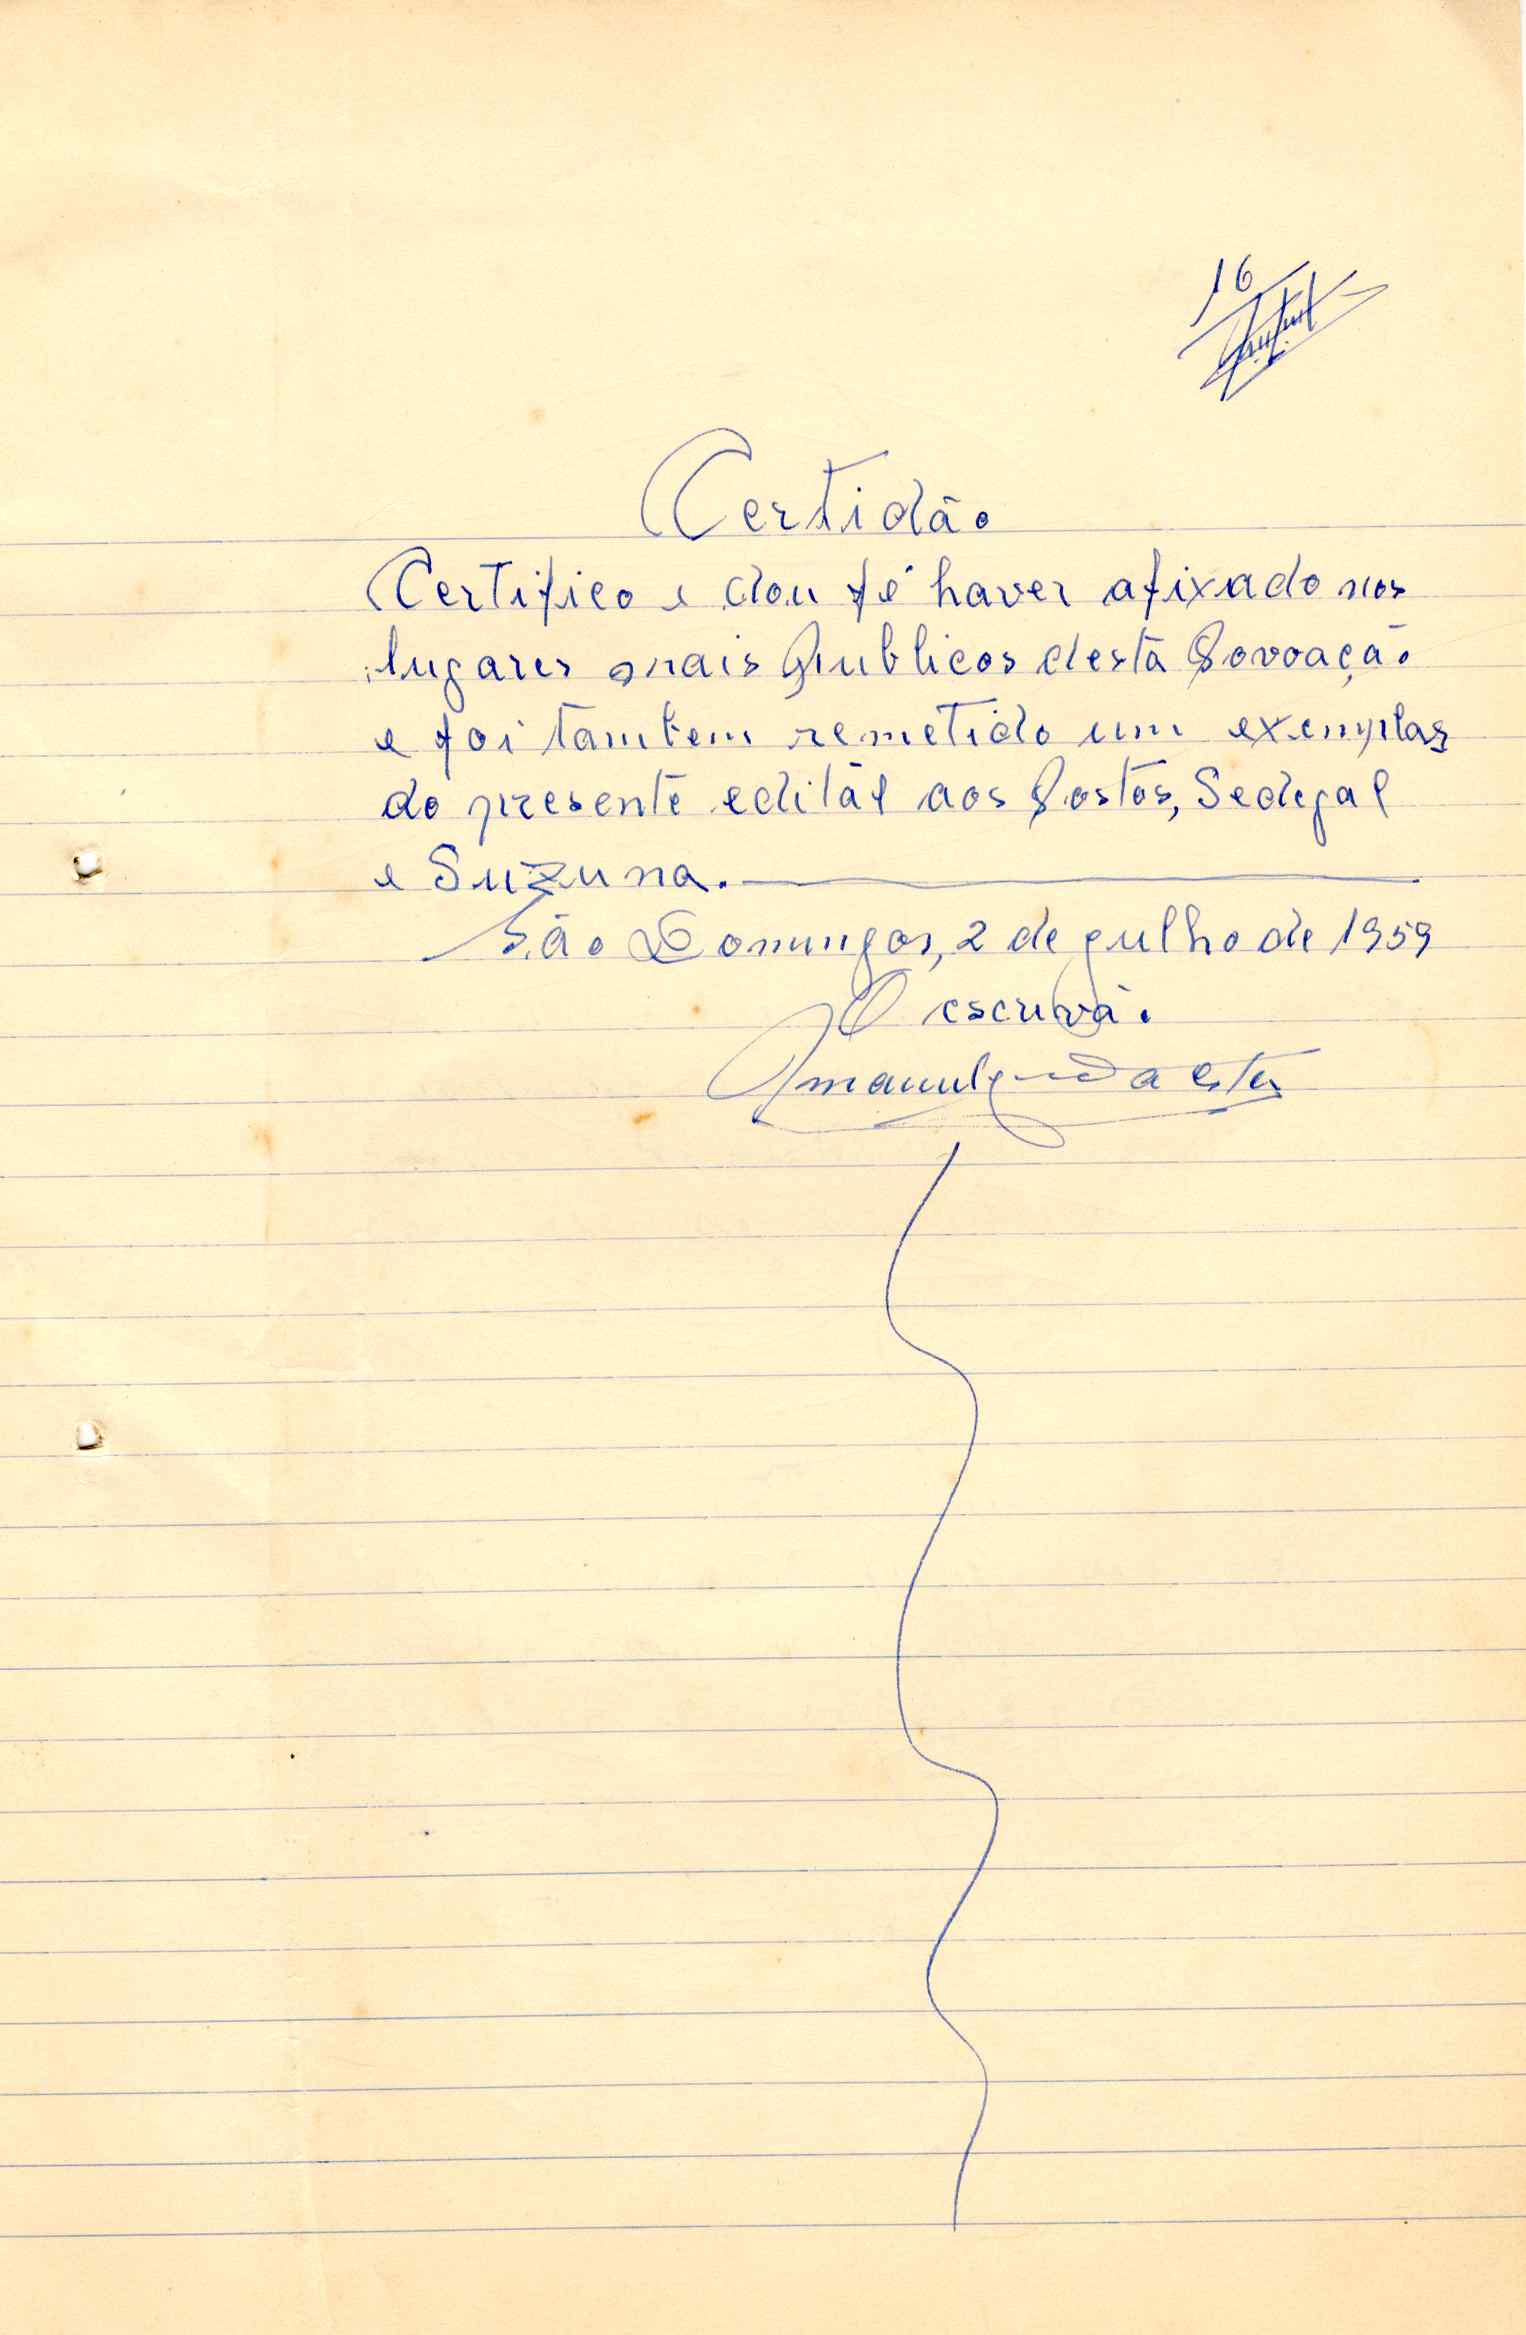 16
Certidão
Certifico e dou fé haver afixado nos
lugares mais Publicos desta Povoação
e foi tambem remetido um exemplar
do presente edital aos Postos, Sedegal
e Suzuna.
São Domingos, 2 de julho de 1959
O escrivão